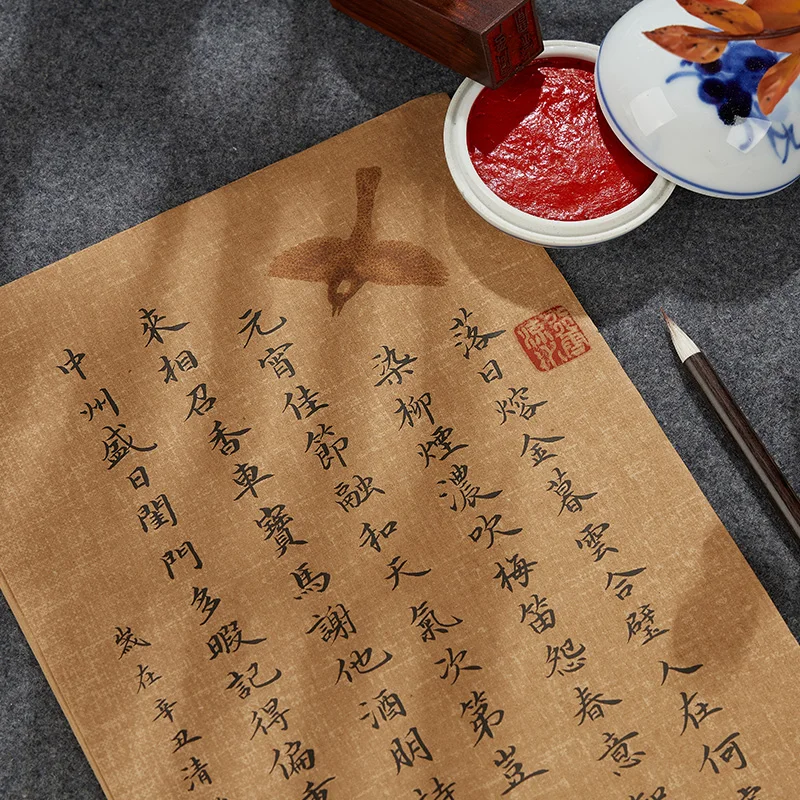 落日熔金暮雲合璧人在何
染柳煙濃吹梅笛怨春意知
元宵佳節融和天氣次第豈
來相召香車寶馬謝他酒朋詩
中州盛日閨門多暇記得偏重
歲在辛丑清